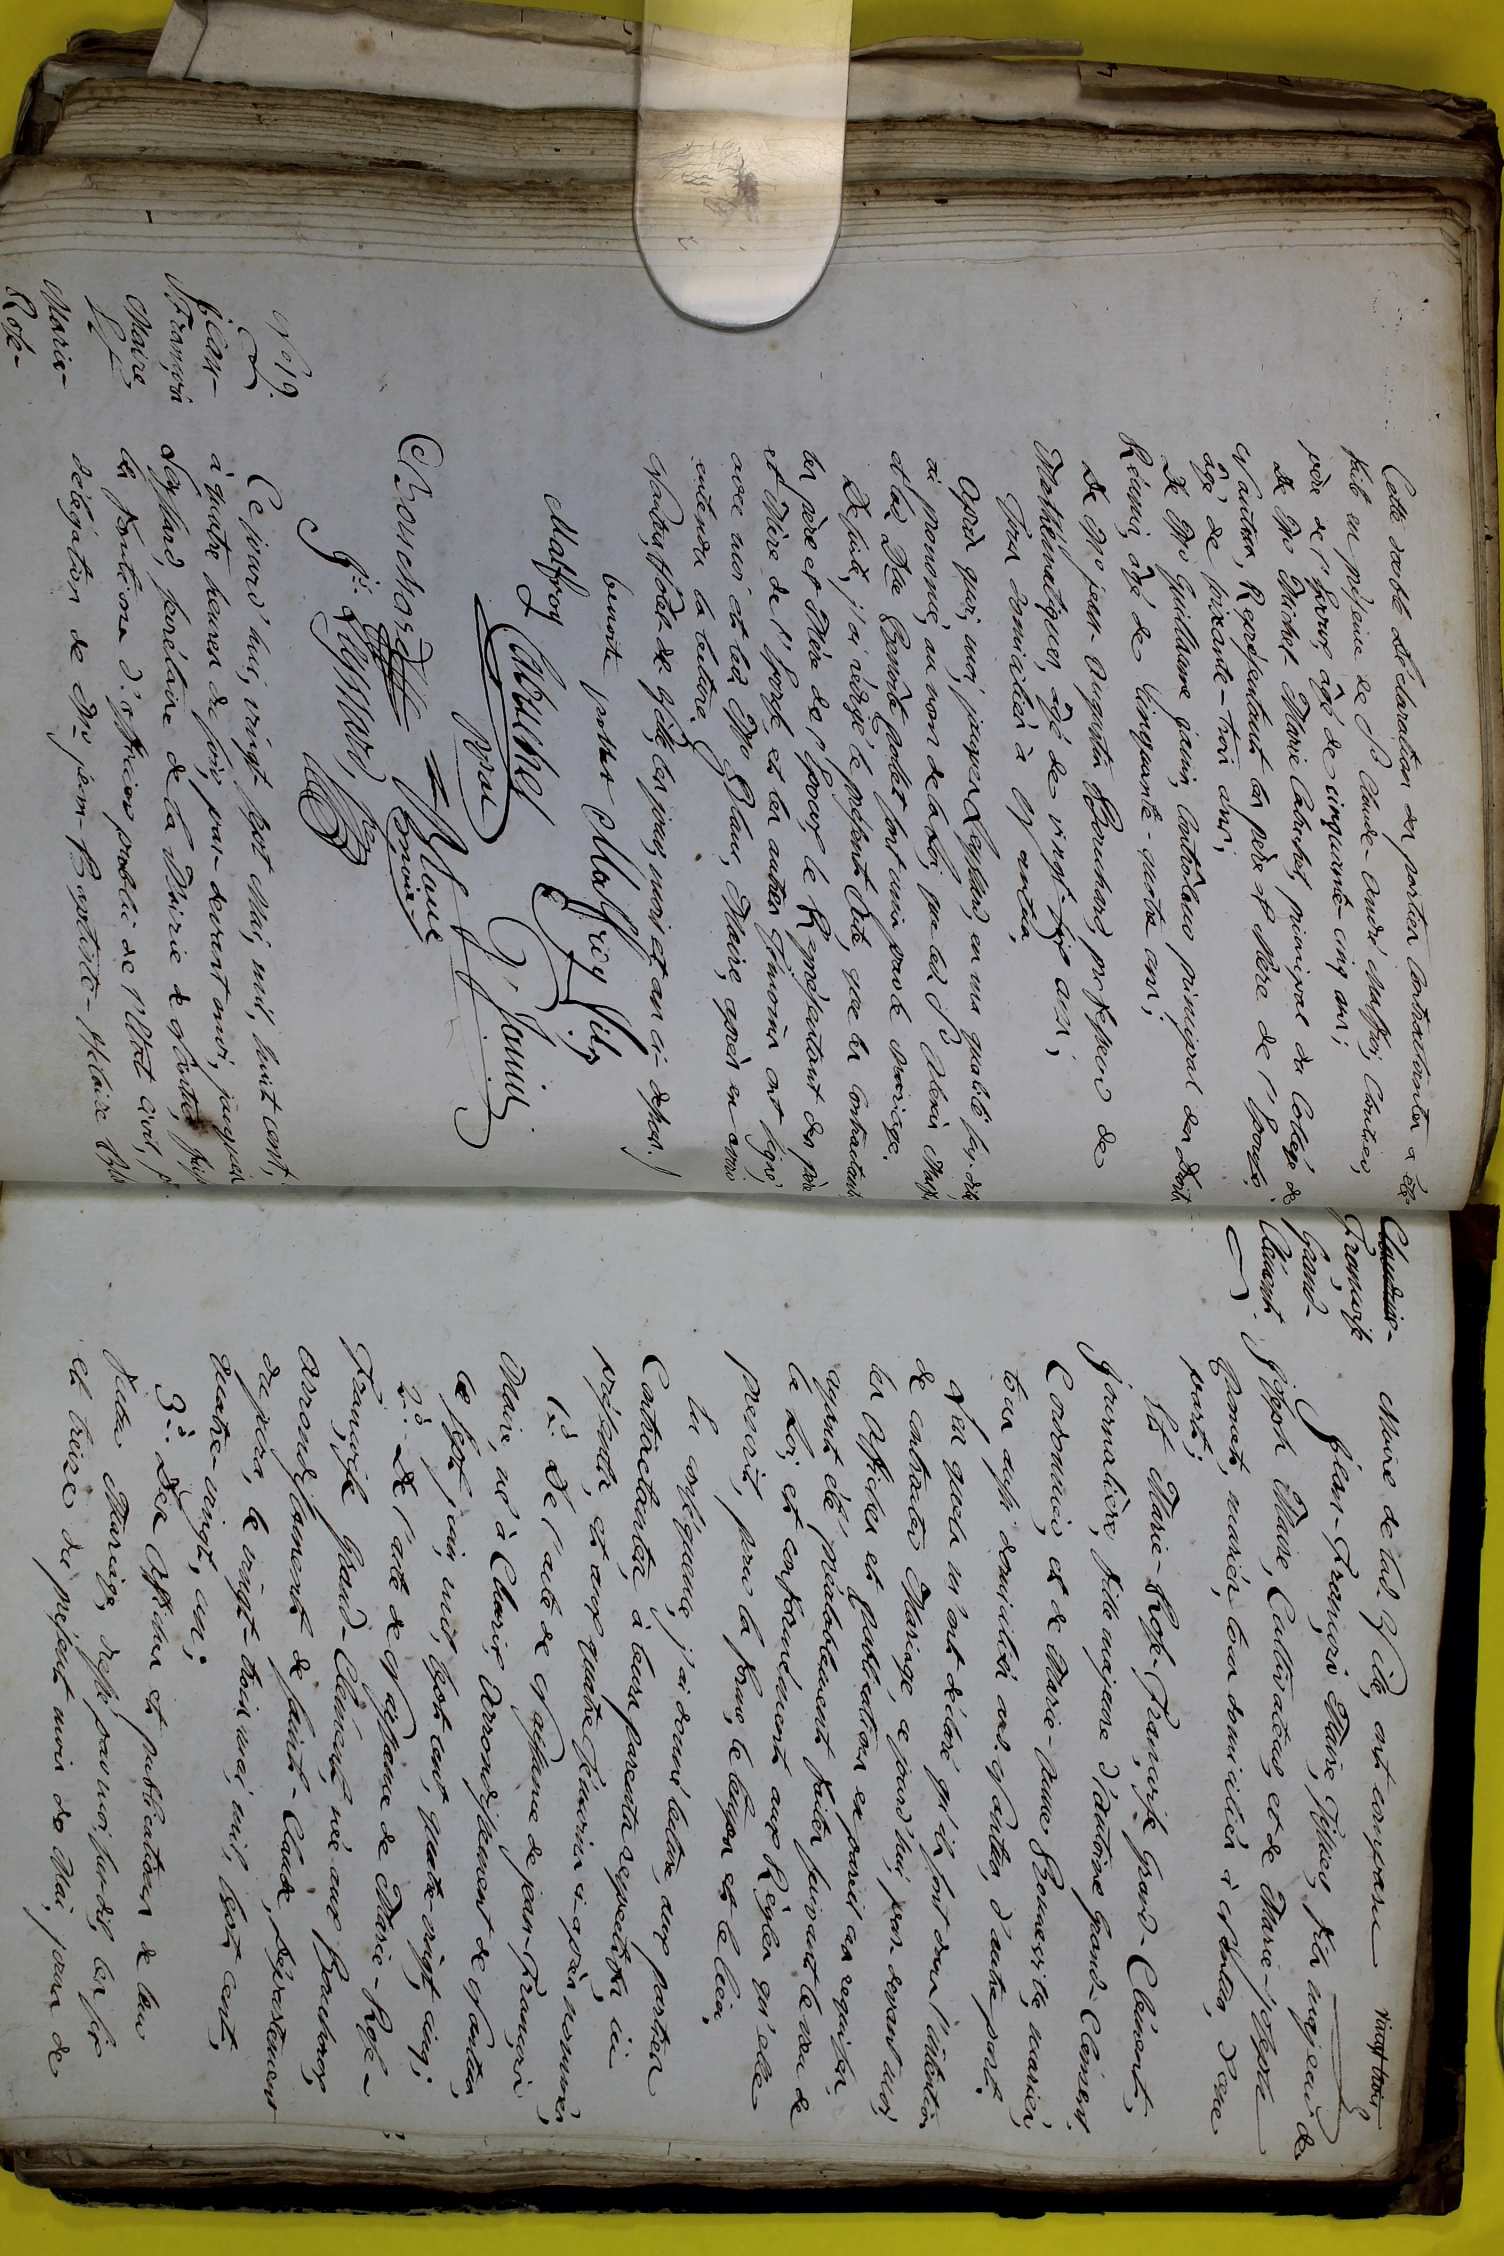 Cette double déclaration des parties Contractantes a été
faite en présence de Sr Claude-André Malfroy, Coutelier,
père de l'Epoux, âgé de cinquante-cinq ans;
De Mr Michel-Marie Cabuchet, principal du Collège de
Nantua, Représentant les père et Mère de l'Epouse,
âgé de soixante-trois ans;
De Mr Guillaume janin, Contrôleur principal des Droits
Réunis, âgé de Cinquante-quatre ans;
De Mr jean-Augustin Bouchard, professeur de
Mathématiques, âgé de vingt-six ans;
Tous domiciliés à Nantua,
Après quoi, moi, jacques Leyssard, en ma qualité sus-dite
ai prononcé, au nom de la Loi, que led. Sr
et lad. Dlle Benoite podet sont unis par le Mariage.
De suite, j'ai rédigé le présent Acte, que les Contractants
les père et Mère de l'Epoux, le Représentant des père
et Mère de l'Epouse, et les autres Témoins ont signé
avec moi et led. Mr Blanc, Maire, après en avoir
entendu la lecture.
Nantua, hôtel de Ville, les jour, mois et an ci-dessus.
benoite podet Malfroy fils
Malfroy Cabuchet janin
père
Bouchard Blanc
Maire
Js. Leyssard,
No 19.
jean-
François
Maire
&
Marie-
Rose-
Ce jourd'hui, vingt-sept Mai, mil, huit cent,
à quatre heures de soir, par-devant moi, jacques
Leyssard, secrétaire de la Mairie de Nantua,
les fonctions d'officier public de l'état civil,
délégation de Mr jean-Baptiste-Hilaire
Claudine-
Françoise
Grand-
Clément.
vingt trois
Maire de lad. Ville, ont comparu
jean-François Maire, Tisseur, fils majeur de
joseph Maire, Cultivateur, et de Marie-josephe
mariés, tous domiciliés à Nantua, d'une
part;
Et Marie-Rose-Françoise Grand-Clément,
Journalière, fille majeure d'Antoine Grand-Clément,
Cordonnier, et de Marie-Anne mariés,
tous aussi domiciliés aud. Nantua, d'autre part.
Les quels m'ont déclaré qu'ils sont dans l'intention
de contracter Mariage, ce jourd'hui, par-devant moi,
les Affiches et publications en pareil cas requises,
ayant été préalablement faites suivant le vœu de
la Loi, et conformément aux Règles qu'elle
prescrit, pour la forme, le temps et le lieu.
En conséquence, j'ai donné lecture, aux parties
Contractantes, à leurs parents respectifs ici
présents, et aux quatre Témoins ci-après nommés,
1o. De l'acte de Naissance de jean-François
Maire, né à Charix, Arrondissement de Nantua,
le sept juin, mil, sept cent, quatre-vingt, cinq;
2o. De l'acte de Naissance de Marie-Rose-
Françoise Grand-Clément, née aux Bouchoux,
Arrondissement de Saint-Claude, Département
du jura, le vingt-trois mai, mil, sept cent,
quatre-vingt, un;
3o. Des Affiches et publications de leur
futur Mariage, par moi susdit, les six
et treize du présent mois de Mai, jours de